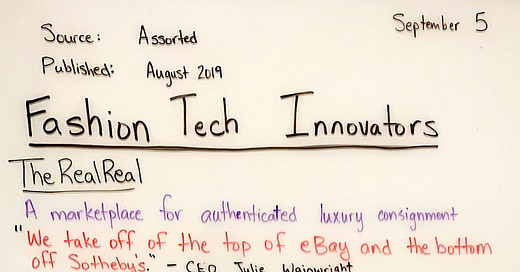 September 5
Source: Assorted
Published: August 2019
Fashion Tech Innovators
The RealReal
A marketplace for authenticated luxury consignment
"We take off of the top of eBay and the bottom
off Sotheby's." - CEO Julie Wainwright